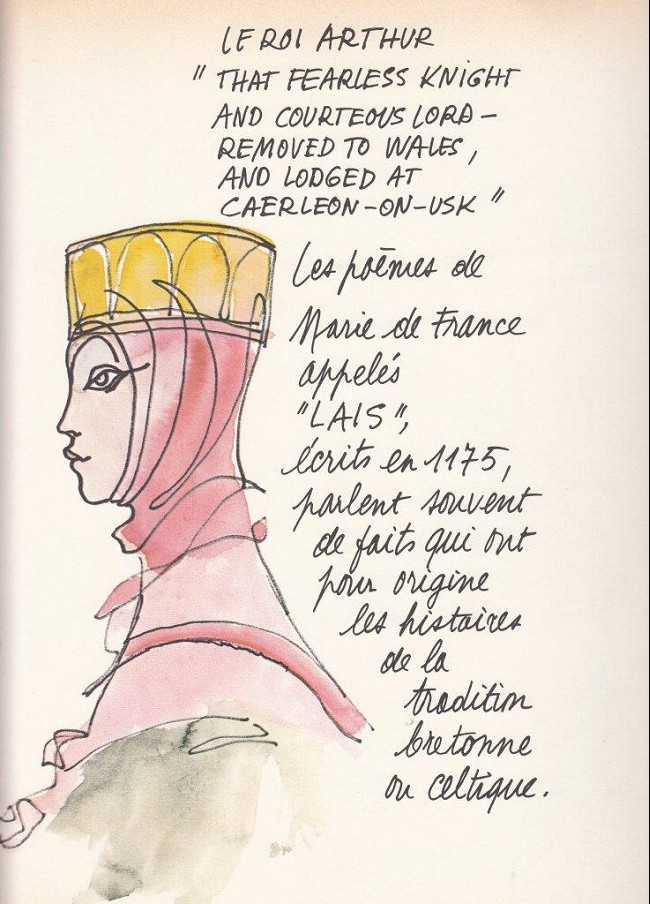 LE ROI ARTHUR
" THAT FEARLESS KNIGHT
AND COURTEOUS LORD -
REMOVED TO WALES,
AND LODGED AT
CAERLEON-ON-USK "
Les poèmes de
Marie de France
appelés
"LAIS",
écrits en 1175,
parlent souvent
de faits qui ont
pour origine
les histoires
de la
tradition
bretonne
ou celtique.